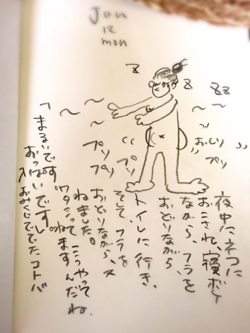 Jun
12
mon
おしり
プリ
プリ
プリ
プリ
夜中にネコに
おこされ、寝ボケ
ながら、フラを
おどりながら
トイレに行き、
そして、フラを
おどりながら、又
ねました。
ワタシって、こうやって
ねますんだね。
「まるいです。
おっぱいですし。」
おみくじででたコトバ